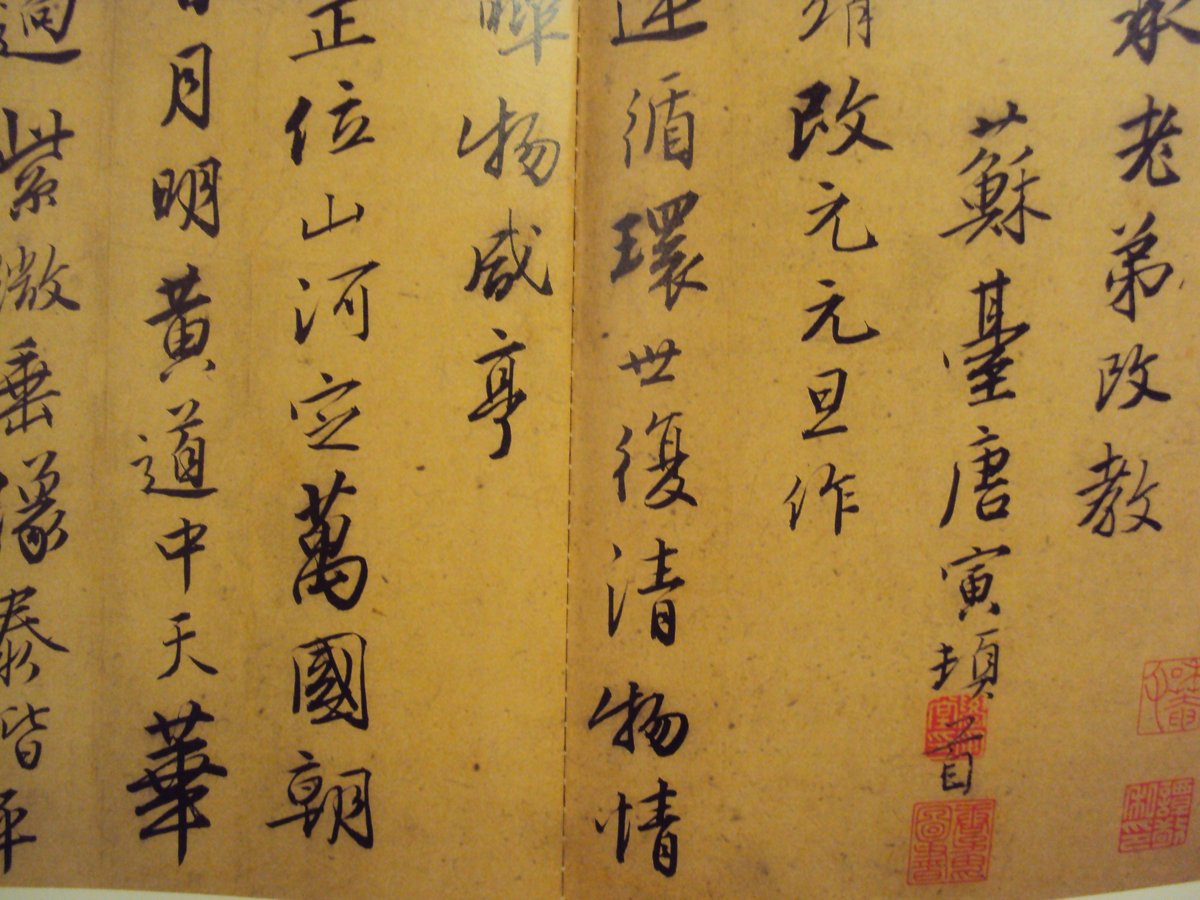 承老弟改教
蘇臺唐寅頓首
靖改元元旦作
運循環世復清物情
皞物咸亨
正位山河定萬國朝
日月明黃道中天華
紫微垂像泰階平